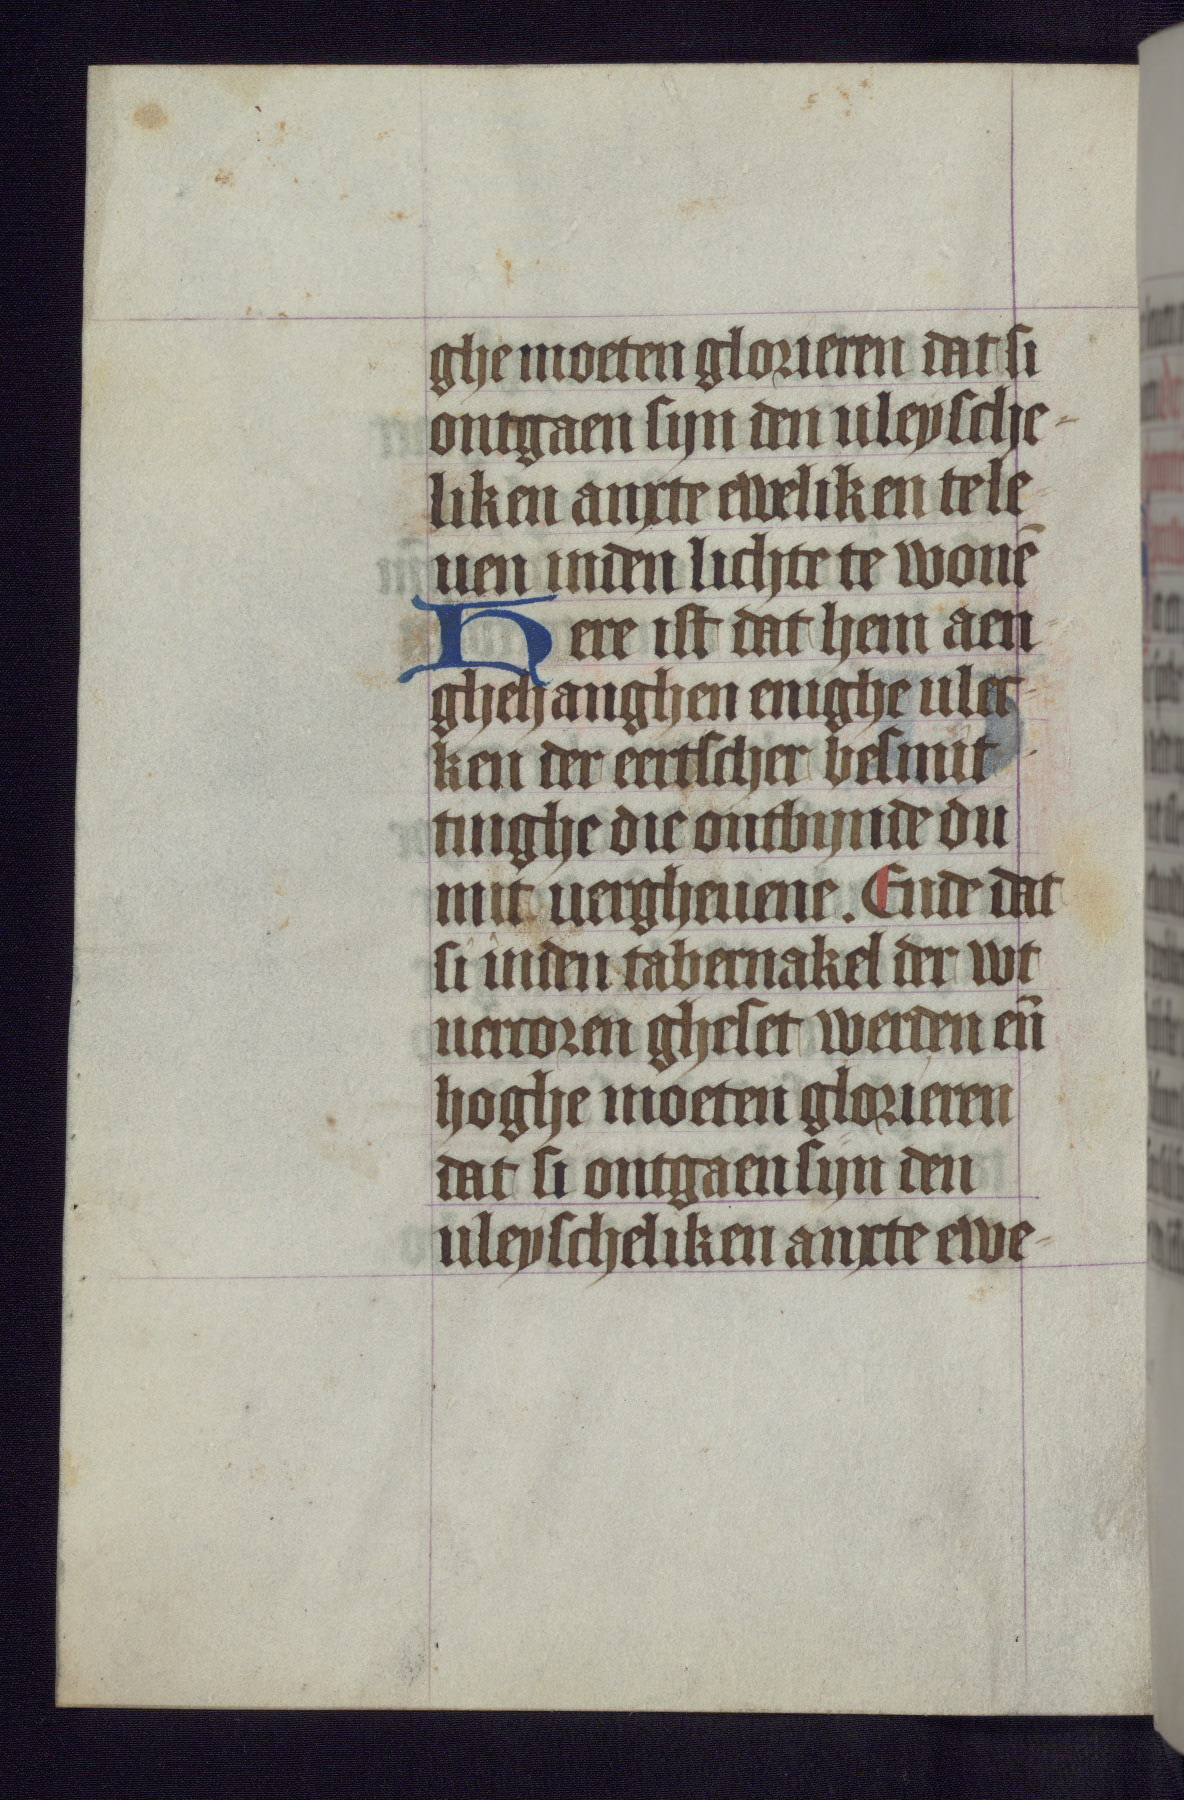 ghe moeten glorieren dat si
ontgaen sijn den uleysche-
liken anxte eweliken te le
uen inden lichte te wonē
Here ist dat hem aen
ghehanghen enighe ulec-
ken der eertscher besmit-
tinghe die ontbijnde du
mit uergheuene. Ende dat
si inden tabernakel der wt
uercoren gheset werden eñ
hoghe moeten glorieren
dat si ontgaen sijn den
uleyscheliken anxte ewe-